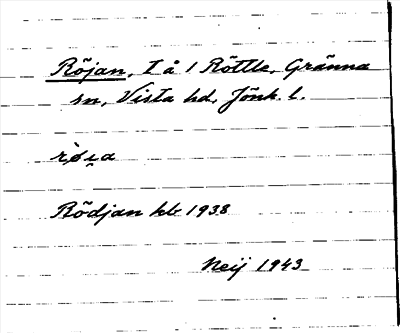 Röjan, t å 1 Röttle, Gränna
sn, Vista hd, Jönk. l.
Rödjan hb 1938
Neij 1943